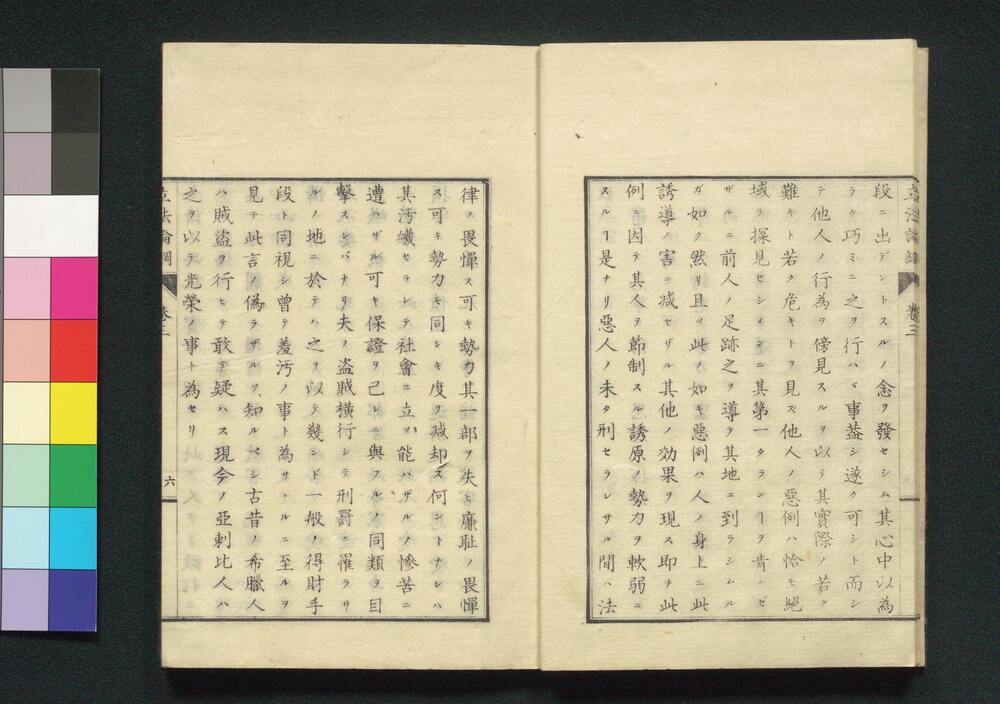 立法論綱 卷三
段ニ出デントスルノ念ヲ發セシム其心中以為
ラク巧ミニ之ヲ行ハヾ事葢シ遂ク可シト而シ
テ他人ノ行為ヲ傍見スルヲ以テ其實際ノ若ク
難キト若ク危キトヲ見ズ他人ノ惡例ハ恰モ絕
域ヲ探見セシメンニ其第一タランヿヲ肯ンゼ
ザルニ前人ノ足跡之ヲ導テ其地ニ到ラシムル
ガ如ク然リ且ッ此ノ如キ惡例ハ人ノ身上ニ此
誘導ノ害ニ減セザル其他ノ効果ヲ現ス即チ此
例ニ因テ其人ヲ節制スル誘原ノ勢力ヲ軟弱ニ
スルヿ是ナリ惡人ノ未タ刑セラレサル間ハ法
律ノ畏憚ス可キ勢力其一部ヲ失ヒ廉耻ノ畏憚
ス可キ勢力モ同シキ度ヲ减却ス何ントナレハ
其汚衊セラレテ社會ニ立ッ能ハザルノ慘苦ニ
遭ハザル可キ保證ヲ己レニ與フルノ同類ヲ目
擊スレバナリ夫ノ盜賊橫行シテ刑罰ニ罹ラサ
ルノ地ニ於テハ之ヲ以テ幾ンド一般ノ得財手
段ト同視シ曾テ羞汚ノ事ト為サヽルニ至ルヲ
見テ此言ノ偽ラザルヲ知ルベシ古昔ノ希臘人
ハ賊盜ヲ行ヒテ敢テ疑ハス現今ノ亞剌比人ハ
之ヲ以テ光榮ノ事ト為セリ
立法論綱 卷三 六